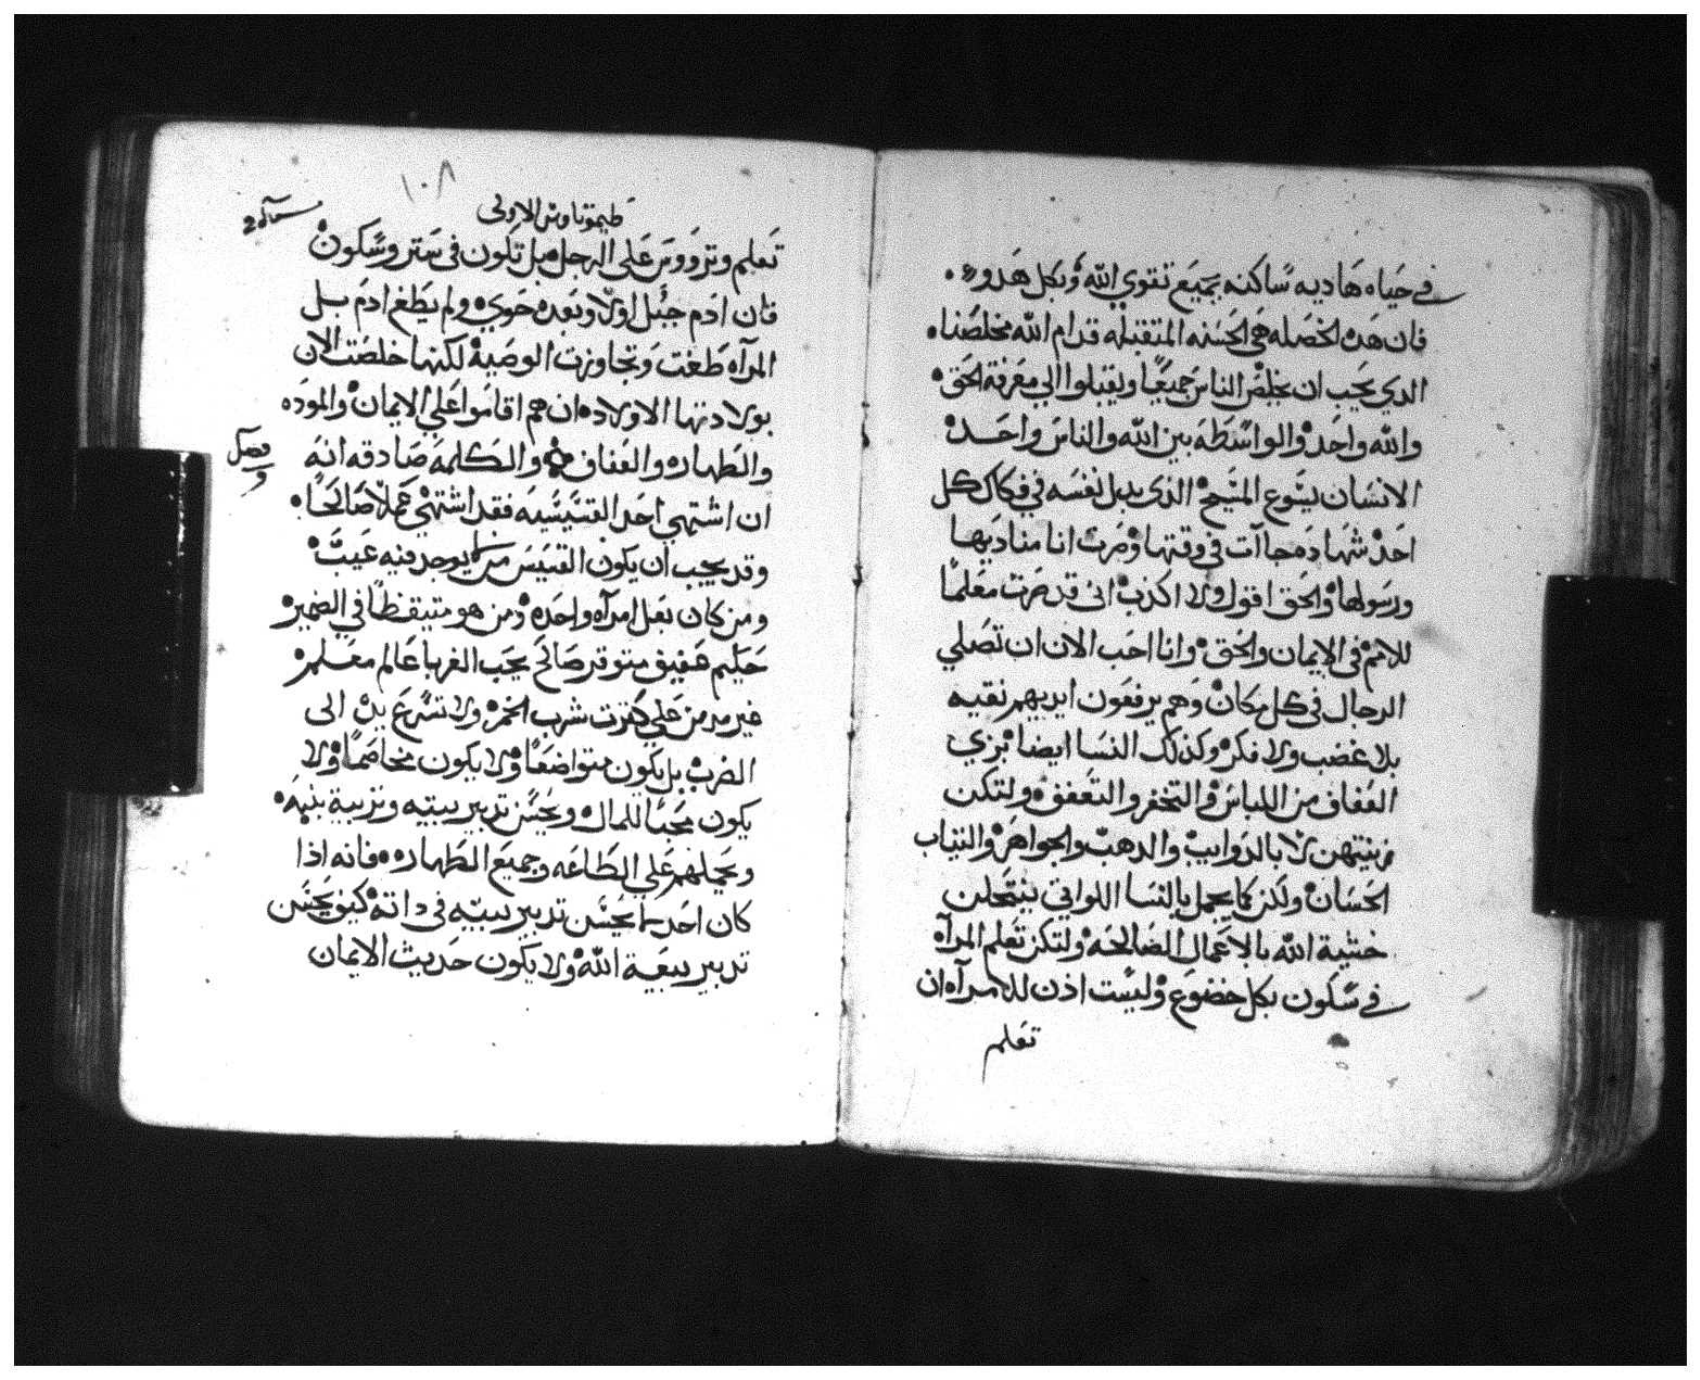 في حياه هاديه ساكنه بجميع تقوي الله وبكل هدوء
فان هده الخصله هي الحسنه المتقبله قدام الله مخلصنا
الدي يحب ان يخلص الناس جميعًا ويقبلوا الي معرفة الحق
والله واحد والواسطه بين الله والناس واحد
الانسان يسوع المسيح الذى بدل نفسه في فكاك كل
احد شهاده جاآت في وقتها وصرت انا مناديها
ورسولها والحق اقول ولا اكدب انى قد صرت معلمًا
للامم فى الايمان والحق وانا احب الان ان تصلي
الرجال فى كل مكان وهم يرفعون ايديهم نقيه
بلا غضب ولا فكر وكذلك النسا ايضا بزي
العفاف من اللباس والتخفر والتعفف ولتكن
زينتهن لا بالدوايب والدهب والجواهر والتياب
الحسان ولكن كما يجمل بالنسا اللواتي ينتحلن
خشية الله بالاعمال الصالحه ولتكن تعلم المرآه
في سكون بكل خضوع وليست اذن للامرآه ان
تعلم
١٠٨
طيموتاوس الاولى
تعلم وترووس على الرجل بل تكون فى ستر وسكون
فان ادم جبل اولا وبعده حوي ولم يطغ ادم بل
المرآه طغت وتجاوزت الوصية لكنها خلصت الان
بولادتها الاولاد ان هم اقاموا علي الايمان والموده
والطهاره والعفاف والكلمة صادقه انه
فصل
و
ان اشتهي احد القسيسيه فقد اشتهي عملا صالحًا
وقد يجب ان يكون القسيس من لا يوجد فيه عيب
ومن كان بعل امرآه واحده ومن هو متيقظًا في الضمير
حليم عفيف متوقر صالح يحب الغربا عالم معلم
غير مدمن علي كترت شرب الخمر ولا تسرع يده الى
الضرب بل يكون متواضعًا ولا يكون مخاصمًا ولا
يكون محبًا للمال ويحسن تدبير بيته وتربية بنيه
ويحملهم علي الطاعه وجميع الطهاره فانه اذا
كان احد لا يحسن تدبير بيته في داته كيف يحسن
تدبير بيعة الله ولا يكون حديث الايمان